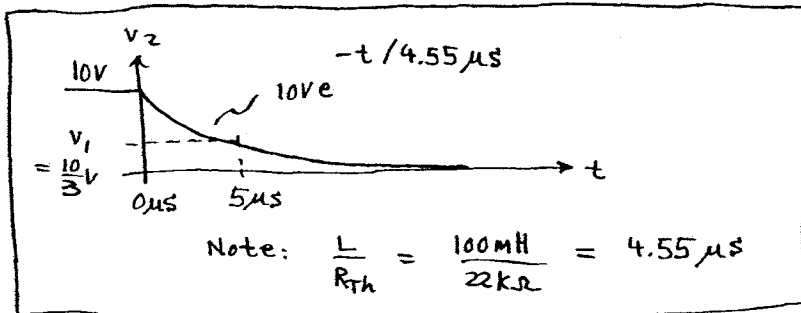 v₂
10V
-t/4.55μs
10Ve
v₁
= 10/3 V
t
0μs
5μs
Note: L/R_Th = 100mH/22kΩ = 4.55μs